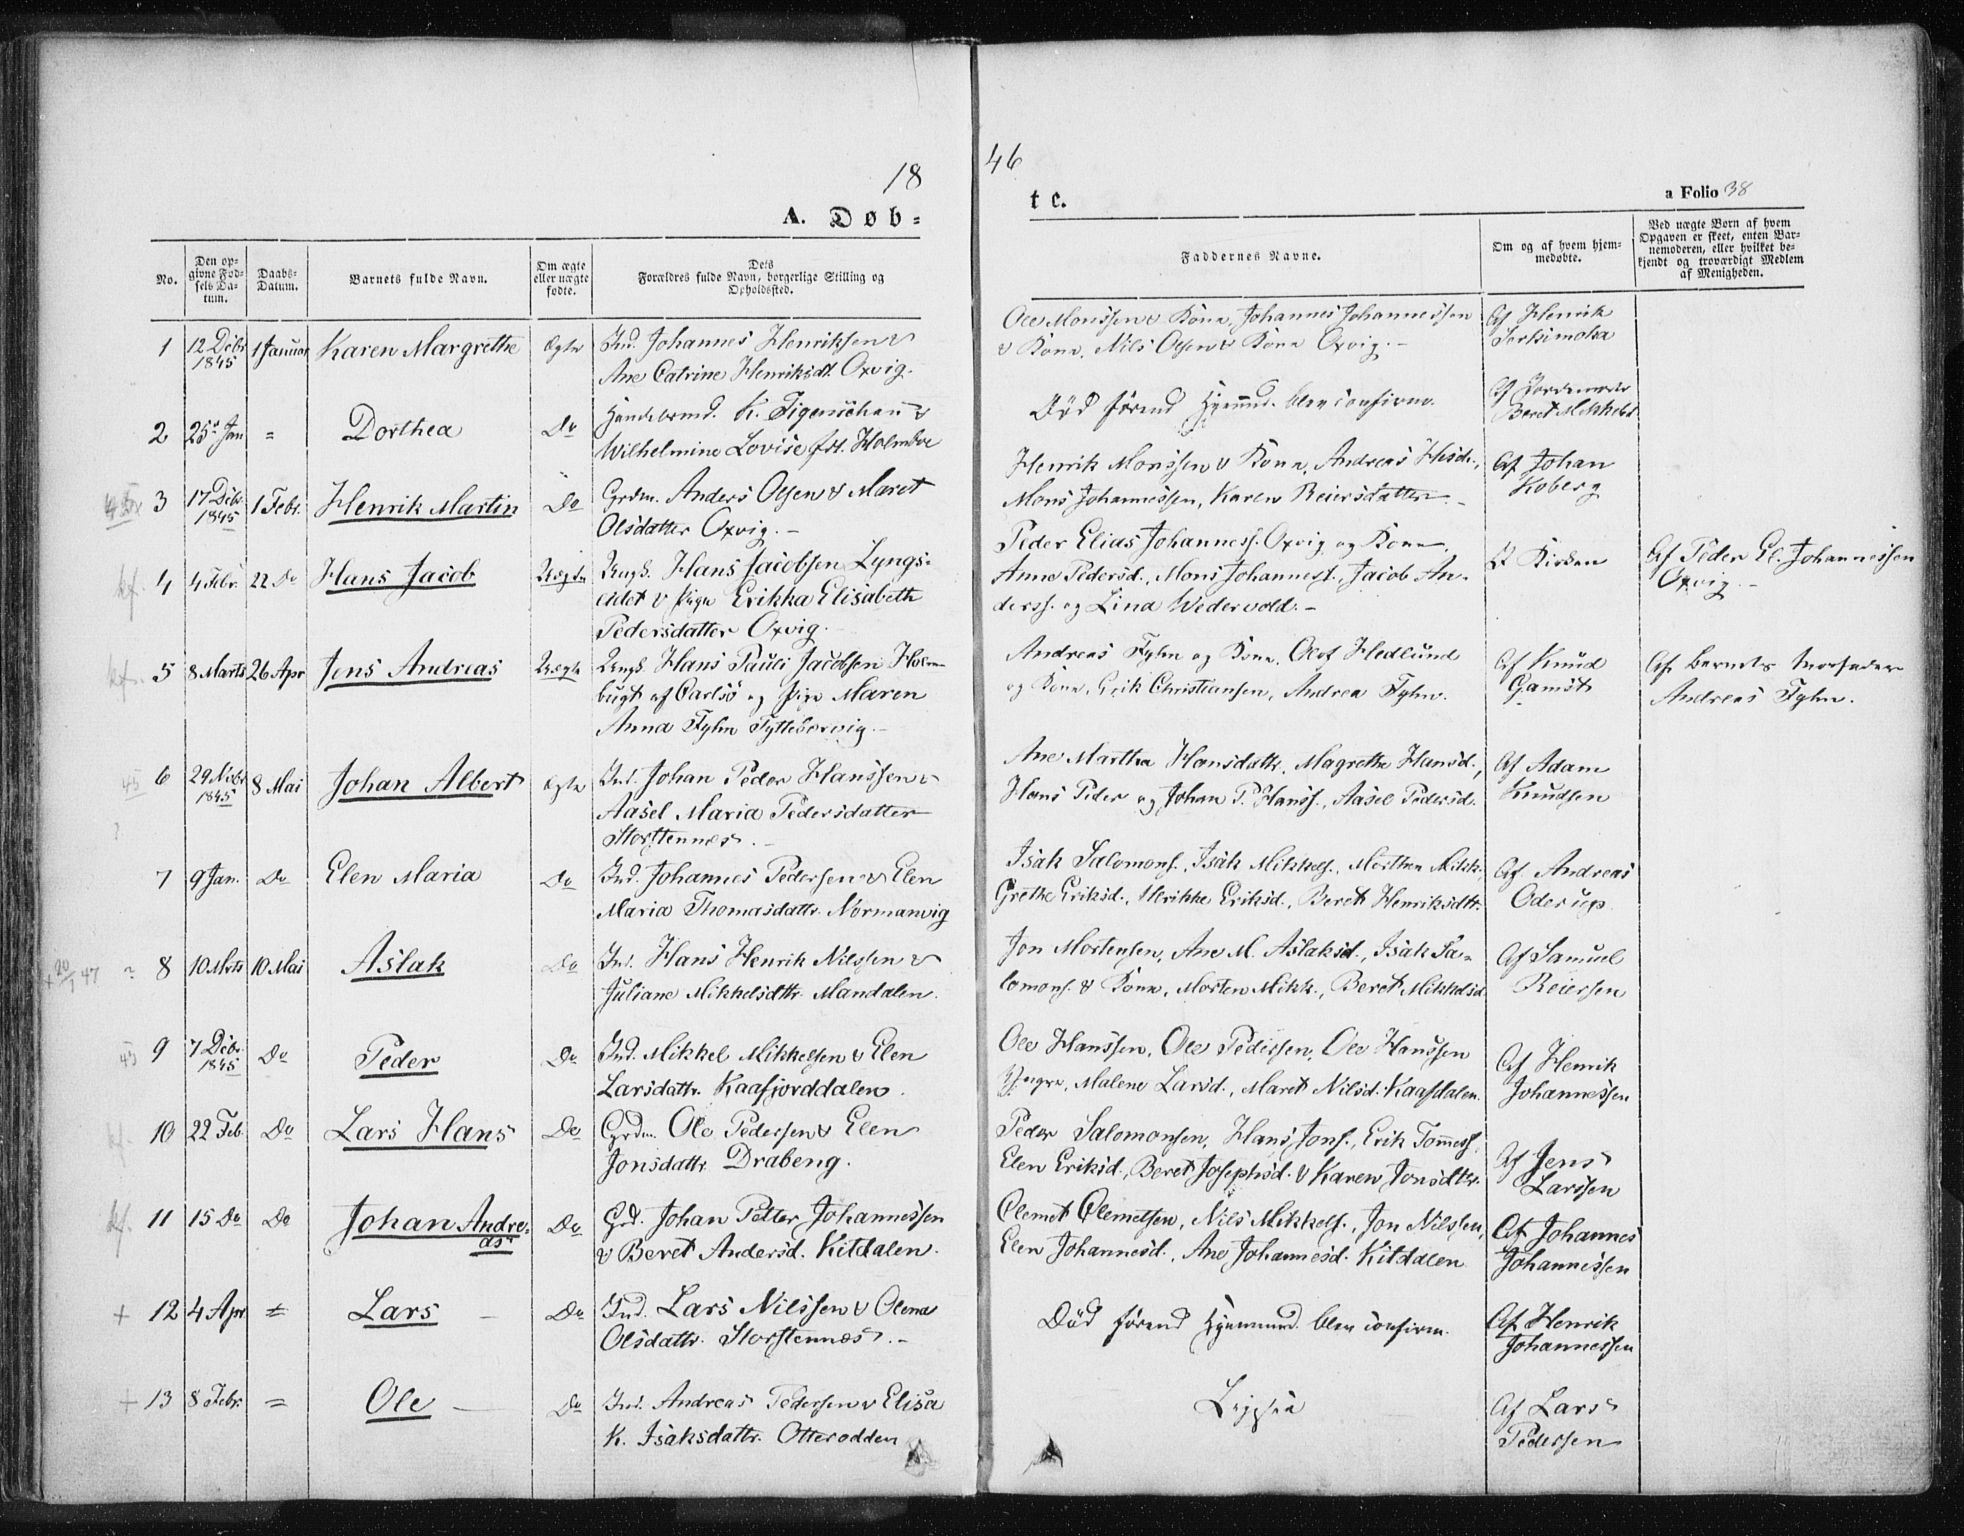 18
46
A. Døb=
te.
a Folio 38
No.
Den op-
givne Fød-
sels Da-
tum.
Daabs-
Datum.
Barnets fulde Navn.
Om ægte
eller uægte
fødte.
Dets
Forældres fulde Navn, borgerlige Stilling og
Opholdssted.
Faddernes Navne.
Om og af hvem hjem-
medøbte.
Ved uægte Børn af hvem
Opgaven er skeet, enten Bar-
nemoderen, eller hvilket be-
kjendt og troværdigt Medlem
af Menigheden.
1
12 Debr
1845
1 Januar
Karen Margrethe
Ægte
Ind. Johannes Henriksen &
Ane Catrine Henriksdt. Oxvig.
Ole Monssen & Kone, Johannes Johannessen
& Kone, Nils Olsen & Kone Oxvig.-
Af Henrik
2
25de Jan
=
Dorthea
Do
K. Figenschau &
Wilhelmine Lovise fød. Holmboe
Død førend Hjemmed. blev confirm.
Af Jordemoder
Beret Mikkelsd.
3
17 Debr.
1845
1 Febr.
Henrik Martin
Do
Grdm. Anders Olsen & Maret
Olsdatter Oxvig.-
Henrik Monssen & Kone, Andreas
Mons Johannessen, Karen Reiersdatter.-
Af Johan
Koberg
kf.
4
4 Febr.
22 Do
Hans Jacob
Uægte
Ungk. Hans Jacobsen Lyngs-
eidet & Pige Erikka Elisabeth
Pedersdatter Oxvig.
Peder Elias Johanness. Oxvig og Kone,
Anne Pedersd., Mons Johanness., Jacob An-
derss. og Lina Wedervold.-
I Kirken
Af Peder El. Johannessen
Oxvig.-
kf.
5
8 Marts
26 Apr
Jens Andreas
Uægte
Ungk. Hans Pauli Jacobsen Holm-
bugt af Carlsø og Pige Maren
Anna Fyhn Tyttebærvig.-
Andreas Fyhn og Kone, Olof Hedlund
og Kone, Erik Christiansen, Andrea Fyhn.
Af Knud
Gamst
Af Barnets Morfader
Andreas Fyhn.
45
6
29 Novbr
1845
8 Mai
Johan Albert
Ægte
Ind. Johan Peder Hanssen &
Aasel Maria Pedersdatter
Storstennes.-
Ane Martha Hansdatr. Magrethe Hansd.,
Hans Peder og Johan P. Hanss., Aasel Pedersd.
Af Adam
Knudsen
?
7
9 Jan.
Do
Elen Maria
Do
Ind. Johannes Pedersen & Elen
Maria Thomasdattr. Normanvig
Isak Salomons., Isak Mikkels., Morthen Mikk.
Grethe Eriksd., Ulrikke Eriksd., Beret Henriksdttr.
Af Andreas
Oderup
+ 20/1 47
?
8
10 Mrts
10 Mai
Aslak
Do
Ind. Hans Henrik Nilssen &
Juliane Mikkelsdttr. Mandalen.
Jon Mortensen, Ane M. Aslaksd., Isak Sa-
lomons. & Kone, Morten Mikk., Beret Mikkelsd
Af Samuel
Reiersen
45
9
7 Debr.
1845
Do
Peder
Do
Ind. Mikkel Mikkelsen & Elen
Larsdattr. Kaafjorddalen.
Ole Hanssen, Ole Pedersen, Ole Hanssen
Yngre, Malene Larsd., Maret Nilsd. Kaafdalen.
Af Henrik
Johannessen
kf.
10
22 Feb.
Do
Lars Hans
Do
Grdm. Ole Pedersen & Elen
Jonsdattr. Drabeng.
Peder Salomonsen, Hans Jons., Erik Tommess.
Elen Eriksd., Beret Josephsd. & Karen Jonsdttr.
Af Jens
Larssen
kf.
11
15 Do
Do
Johan Andre-
as
Do
Grd. Johan Petter Johannessen
& Beret Andersd. Kitdalen.
Clemet Clemetsen, Nils Mikkels., Jon Nilssen,
Elen Johannesd., Ane Johannesd. Kitdalen
Af Johannes
Johannessen
+
12
4 Apr
=
Lars
Do
Ind. Lars Nilssen & Olena
Olsdattr. Storstennes.-
Død førend Hjemmed. blev confirm.
Af Henrik
Johannessen
+
13
8 Febr.
=
Ole
Do
Ind. Andreas Pedersen & Elisa
K. Isaksdattr. Otterodden
Ligesaa
Af Lars
Pedersen